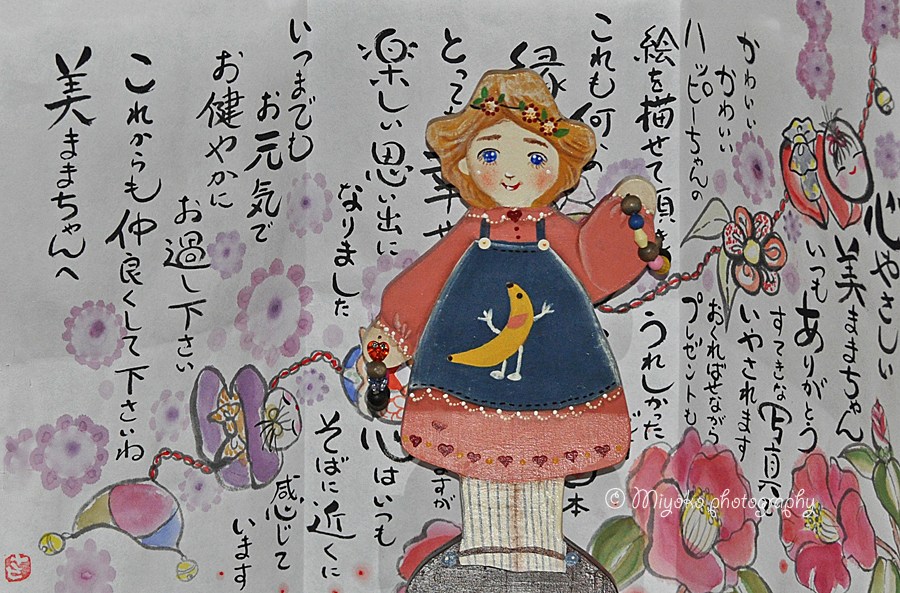 心やさしい
美ままちゃん
いつもありがとう
すてきな写真に
いやされます
おくればせながら
プレゼントも
かわいい
かわいい
ハッピーちゃんの
絵を描せて頂き
うれしかった
これも何かの
縁
本
とっても幸せ
ですが
楽しい思い出に
なりました
心はいつも
そばに近くに
感じて
います
いつまでも
お元気で
お健やかに
お過し下さい
これからも仲良くして下さいね
美ままちゃんへ
© Miyoko photography